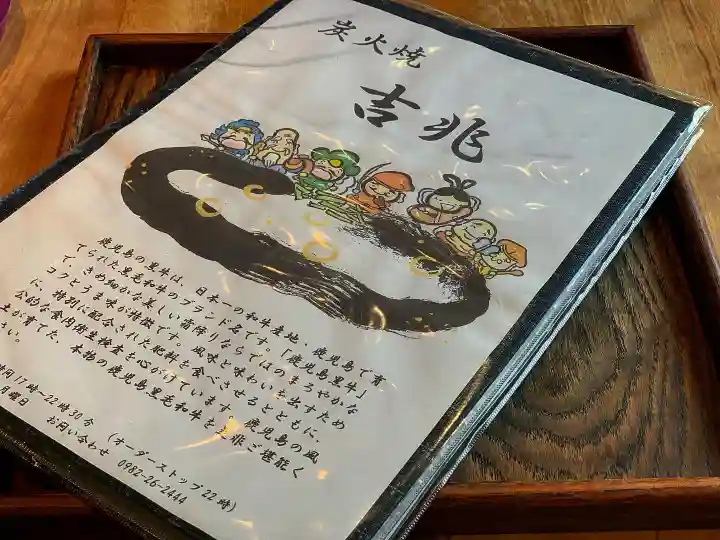 炭火焼
吉兆
鹿児島の黒牛は、日本一の和牛産地、鹿児島で育
てられた黒毛和牛のブランド名です。「鹿児島黒牛」
て、きめ細かな美しい霜降りならではのまろやかな
コクとうま味が特徴です。風味と味わいを出すため
に、特別に配合された肥料を食べさせるとともに、
公的な衛生検査を心がけています。鹿児島の風
土が育てた、本物の鹿児島黒毛和牛を是非ご堪能く
さい。
時間17時〜22時30分 (オーダーストップ22時)
月曜日
お問い合わせ 0982-26-2444